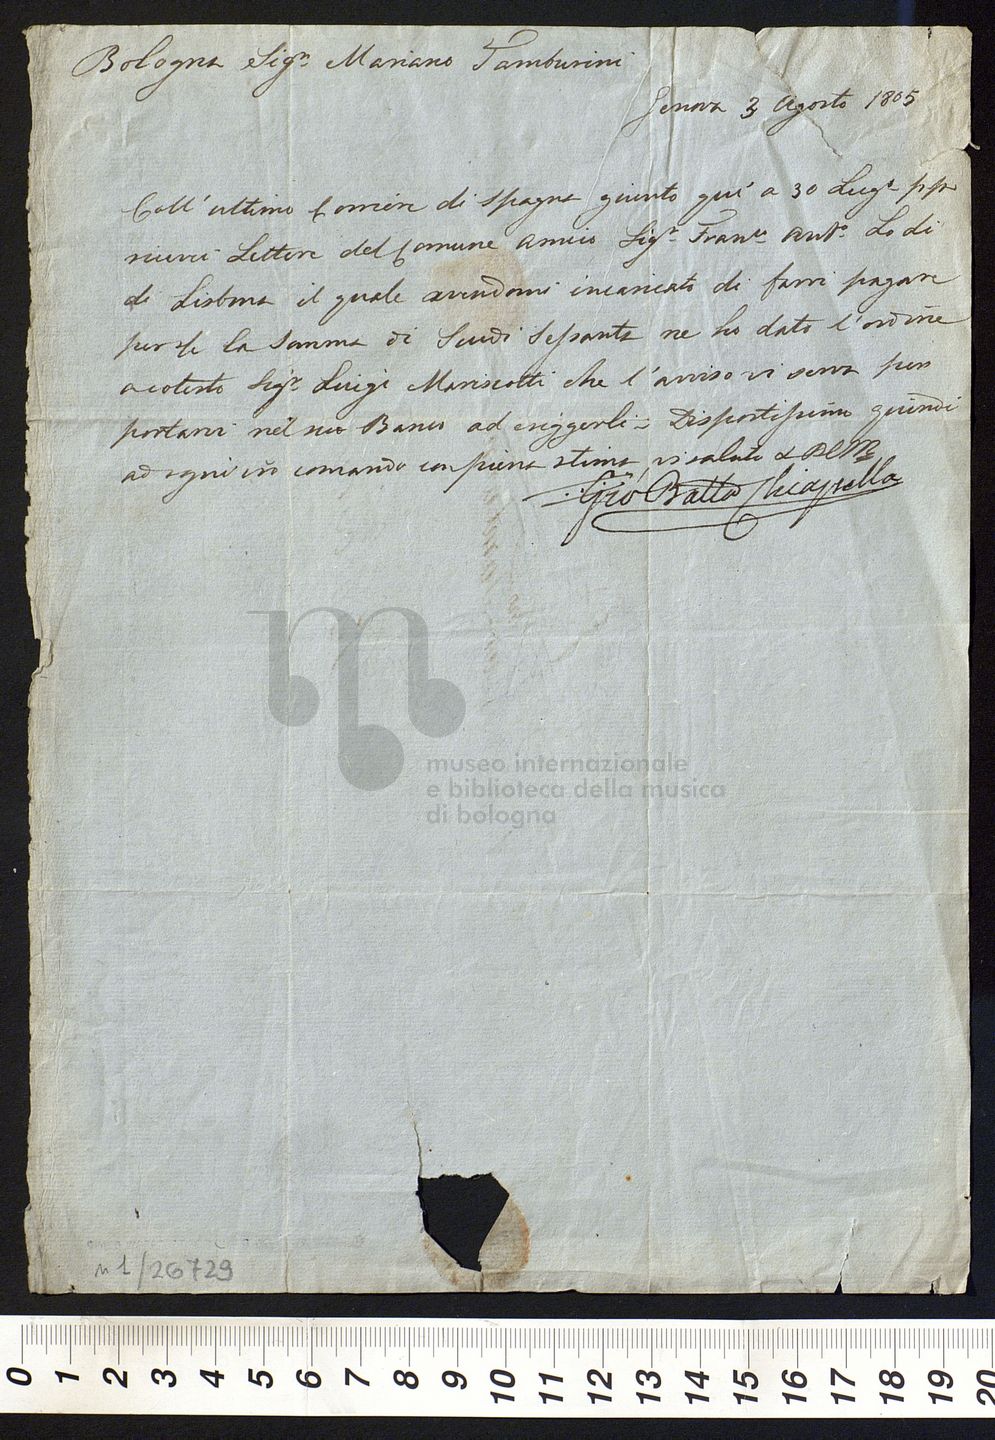 Bologna Sig.r Mariano Tamburini
Genova 3 Agosto 1805
Coll'ultimo Corriere di Spagna giunto quì a 30 Lug.o pp.o
ricevei Lettere del Comune Amico Sig.r Fran.co Ant.o Lodi
di Lisbona il quale avendomi incaricato di farvi pagare
per se la Somma di Scudi Sessanta ne ho dato l'ordine
a cotesto Sig.r Luigi Mariscotti che l'avviso vi serva per
portarvi nel suo Banco ad esiggerli = Dispostissimo quindi
ad ogni vr̃o comando con piena stima vi saluto &
Gio Batta Chiapella
museo internazionale
e biblioteca della musica
di bologna
n 1/26729
0 1 2 3 4 5 6 7 8 9 10 11 12 13 14 15 16 17 18 19 20